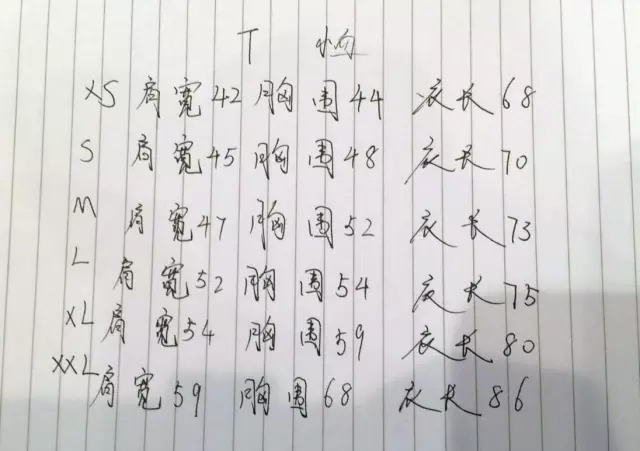 T 恤
XS 肩宽42 胸围44 衣长68
S 肩宽45 胸围48 衣长70
M 肩宽47 胸围52 衣长73
L 肩宽52 胸围54 衣长75
XL 肩宽54 胸围59 衣长80
XXL 肩宽59 胸围68 衣长86